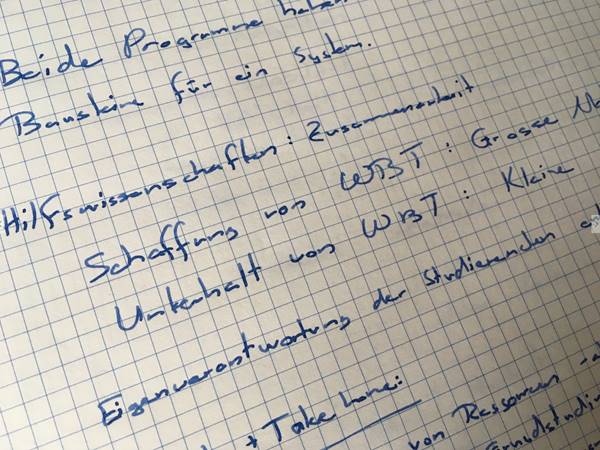 Beide Programme haben
Bausteine für ein System.
Hilfswissenschaften: Zusammenarbeit
Schaffung von WBT: Grosse
Unterhalt von WBT: Kleine
Eigenverantwortung der Studierenden
+ Take home:
von Ressourcen
Grundstudium